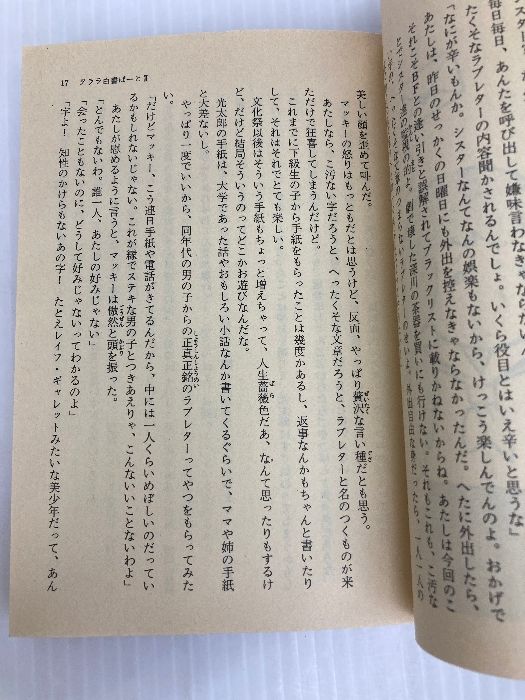 毎日毎日、あんたを呼び出して嫌味言わな
たくそなラブレターの内容聞かされるんでしょ。いくら役目とはいえ辛いと思うな」
「なにが辛いもんか。シスターなんてなんの娯楽もないから、けっこう楽しんでんのよ。おかげで
あたしは、昨日のせっかくの日曜日にも外出を控えなきゃならなかったんだ。へたに外出したら、
それこそBFとの逢い引きと誤解されてブラックリストに載りかねないからね。あたしは今回のこ
とでシスター達の監視の的よ。深川の茶器を買いにも行けない。それもこれも、こ汚な
つまらないラブレターのせいよ。外出自由な身だったら、一人一人の
17 クララ白書ぱーとII
美しい顔を歪めて叫んだ。
マッキーの怒りはもっともだとは思うけど、反面、やっぱり贅沢な言い種だとも思う。
あたしなら、こ汚ない字だろうと、へったくそな文章だろうと、ラブレターと名のつくものが来
ただけで狂喜してしまうんだけどな。
これまでに下級生の子から手紙をもらったことは幾度かあるし、返事なんかもちゃんと書いたり
して、それはそれでとても楽しい。
文化祭以後はそういう手紙もちょっと増えちゃって、人生薔薇色だあ、なんて思ったりもするけ
ど、だけど結局そういうのってどこかお遊びなんだな。
光太郎の手紙は、大学であった話やおもしろい小話なんか書いてくるぐらいで、ママや姉の手紙
と大差ないし。
やっぱり一度でいいから、同年代の男の子からの正真正銘のラブレターってやつをもらってみた
い。
「だけどマッキー、こう連日手紙や電話がきてるんだから、中には一人くらいめぼしいのだってい
るかもしれないじゃない。これが縁でステキな男の子とつきあえりゃ、こんないいことないわよ」
あたしが慰めるように言うと、マッキーは傲然と頭を振った。
「とんでもないわ。誰一人、あたしの好みじゃない」
「会ったこともないのに、どうして好みじゃないってわかるのよ」
「字よ！ 知性のかけらもないあの字！ たとえレイフ・ギャレットみたいな美少年だって、あん